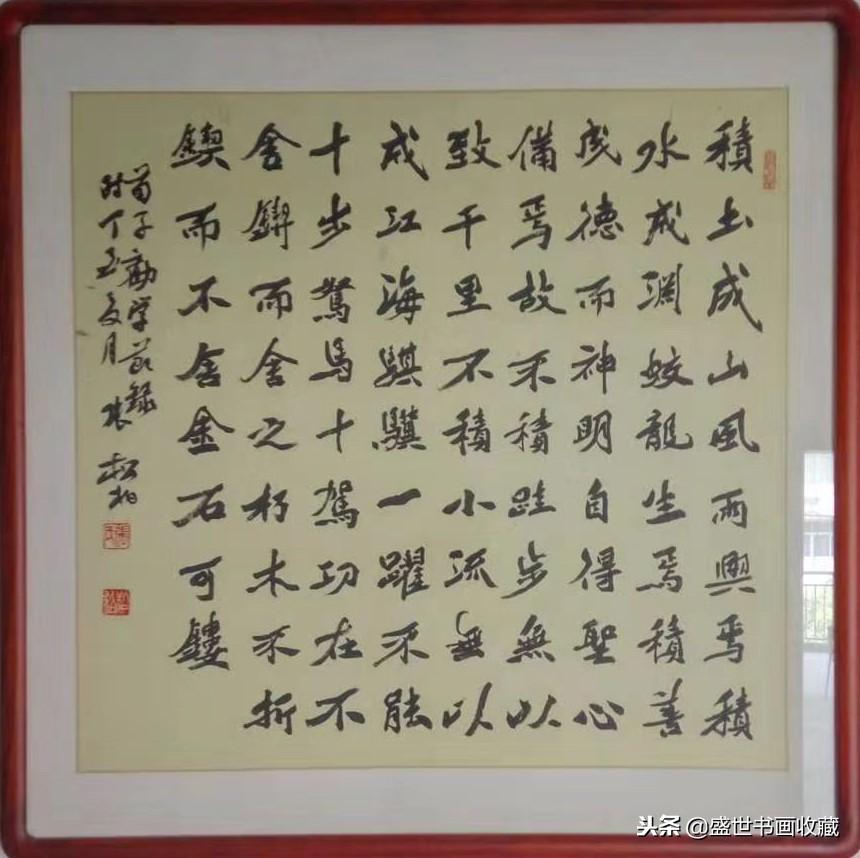 積土成山風雨興焉積
水成淵蛟龍生焉積善
成德而神明自得聖心
備焉故不積跬步無以
致千里不積小流無以
成江海騏驥一躍不能
十步駑馬十駕功在不
舍鍥而舍之朽木不折
鍥而不舍金石可鏤
荀子勸学节録
时丁 夏月 松柏
头条 @盛世书画收藏